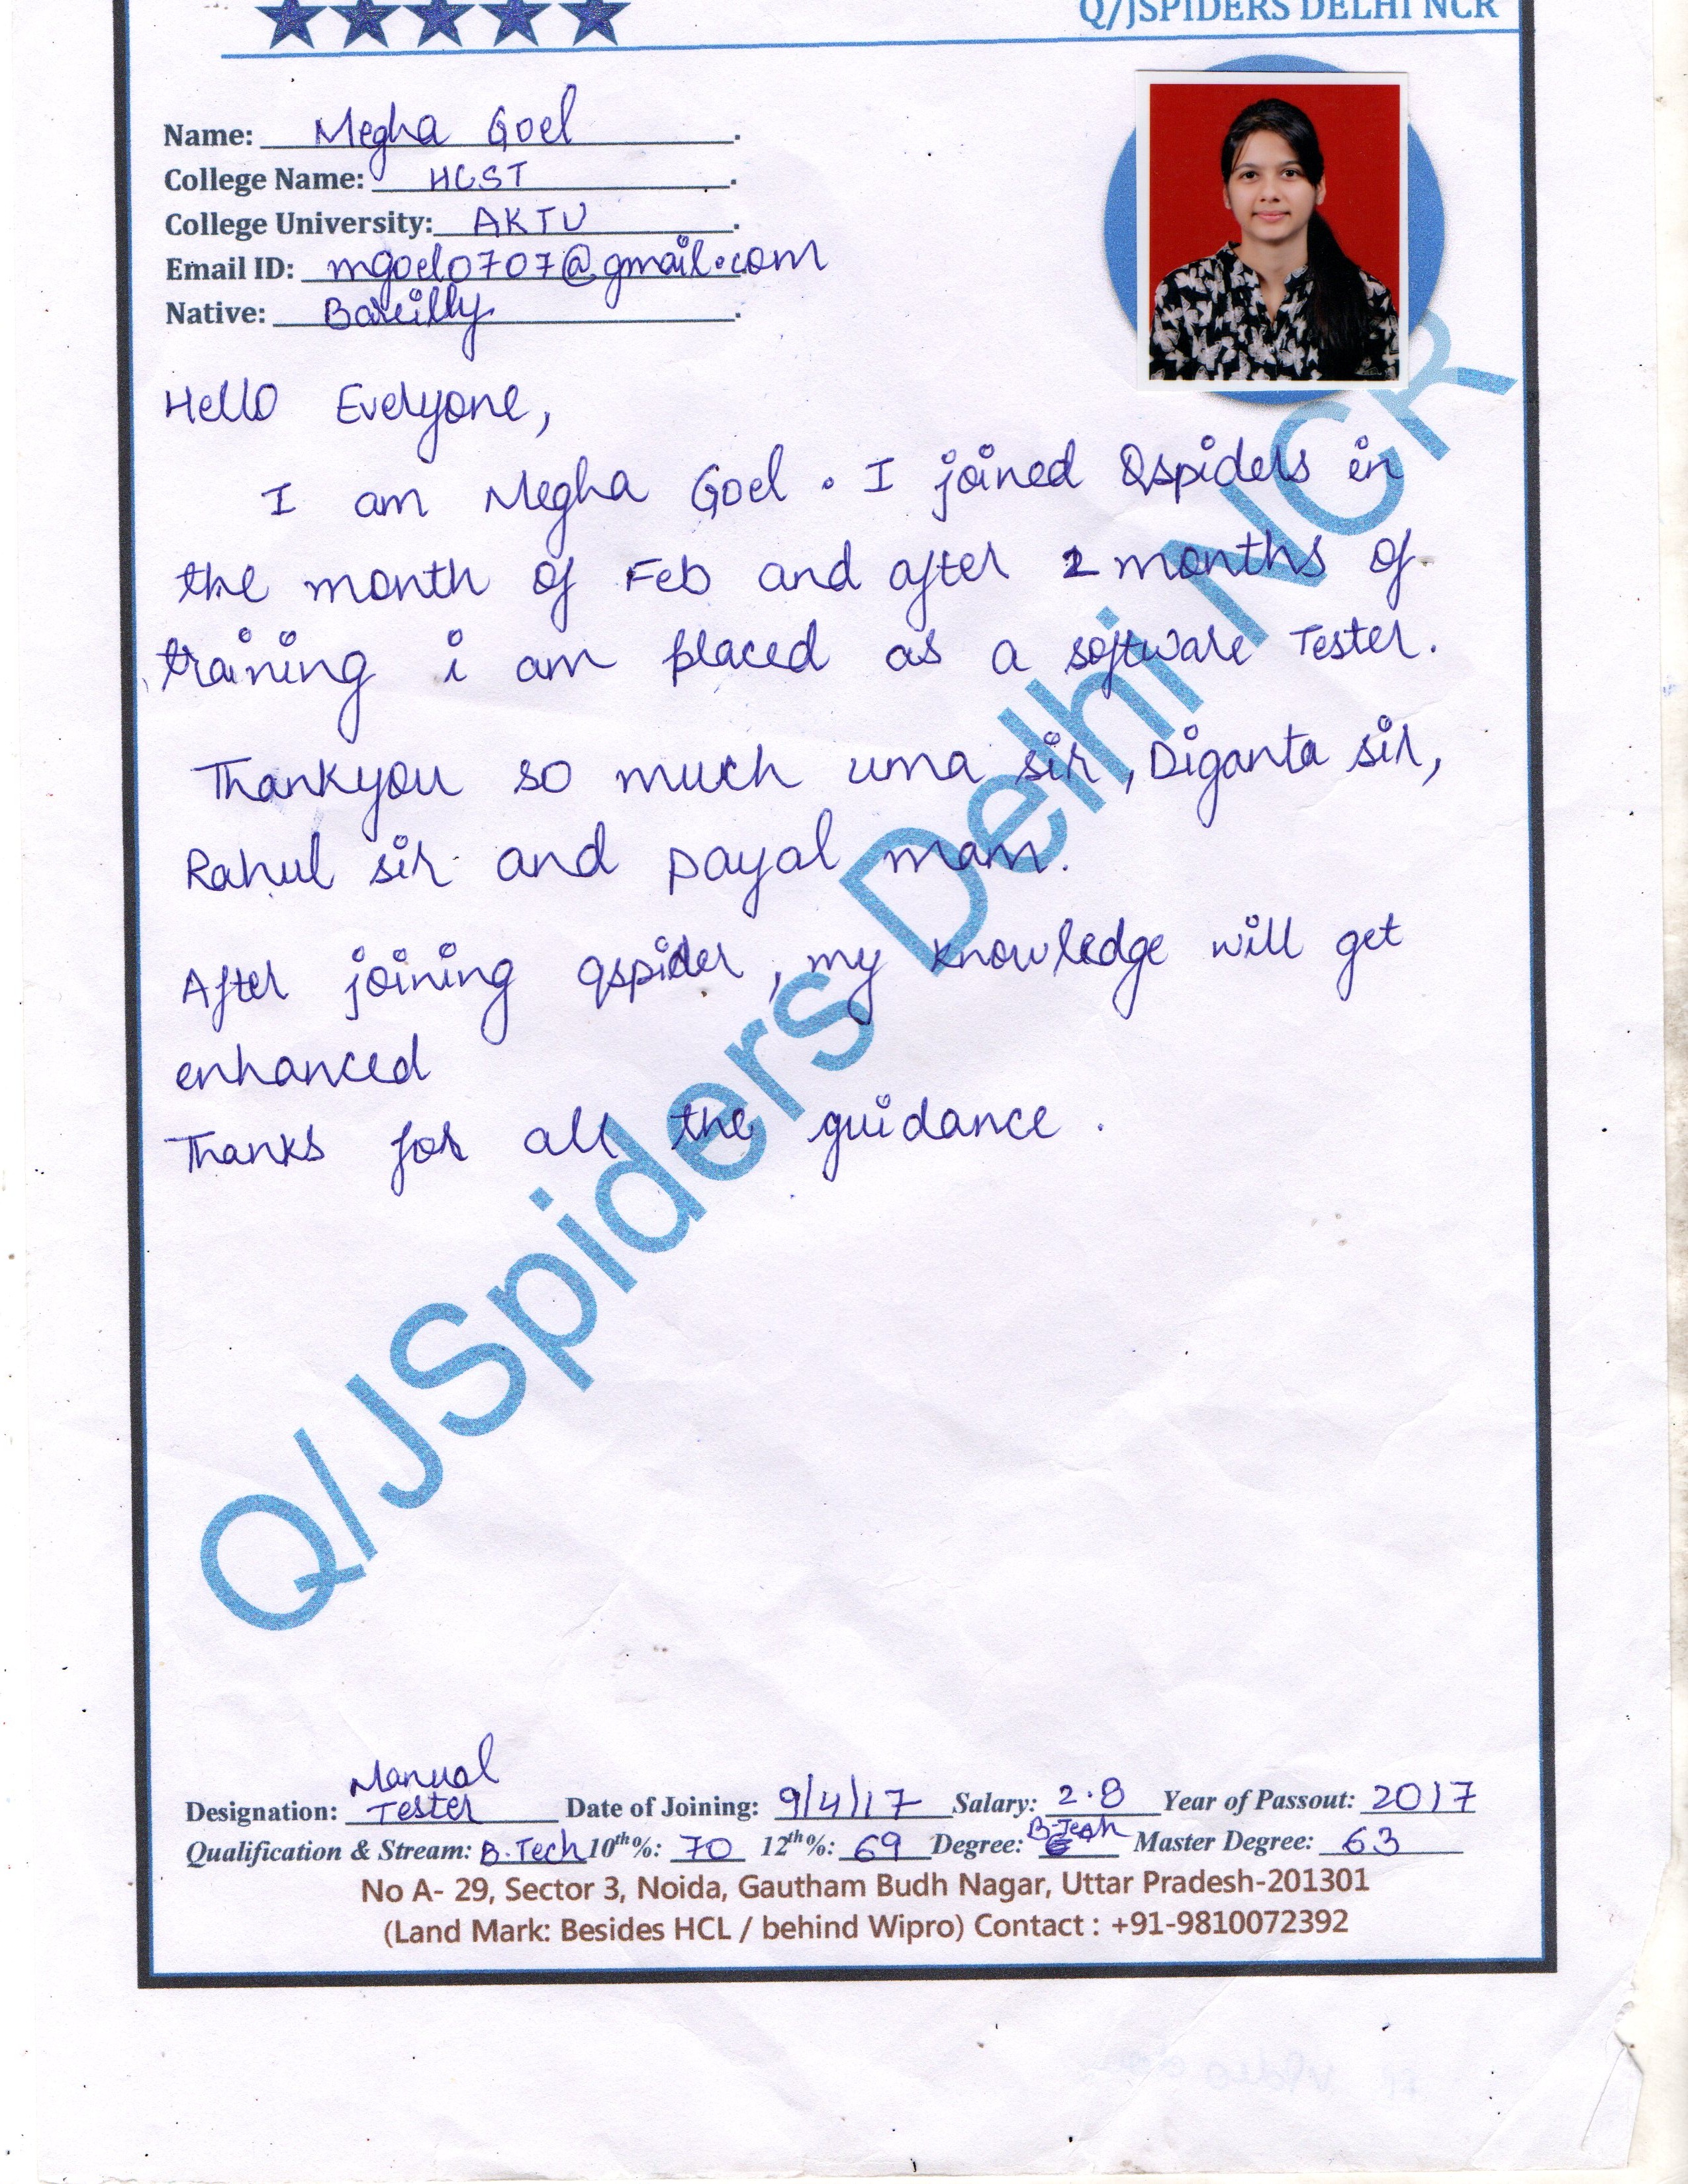 Q/JSPIDERS DELHI NCR
Name: Megha Goel.
College Name: HCST.
College University: AKTU.
Email ID: mgoel0707@gmail.com
Native: Bareilly.
Hello Everyone,
I am Megha Goel. I joined Qspiders in
the month of Feb and after 2 months of
training i am placed as a software Tester.
Thankyou so much uma sir, Diganta sir,
Rahul sir and payal mam.
After joining qspider, my knowledge will get
enhanced
Thanks for all the guidance.
Q/JSpiders Delhi NCR
Designation: Manual Tester Date of Joining: 9/4/17 Salary: 2.8 Year of Passout: 2017
Qualification & Stream: B.Tech 10th%: 70 12th%: 69 Degree: B.Tech Master Degree: 63
No A- 29, Sector 3, Noida, Gautham Budh Nagar, Uttar Pradesh-201301
(Land Mark: Besides HCL / behind Wipro) Contact : +91-9810072392